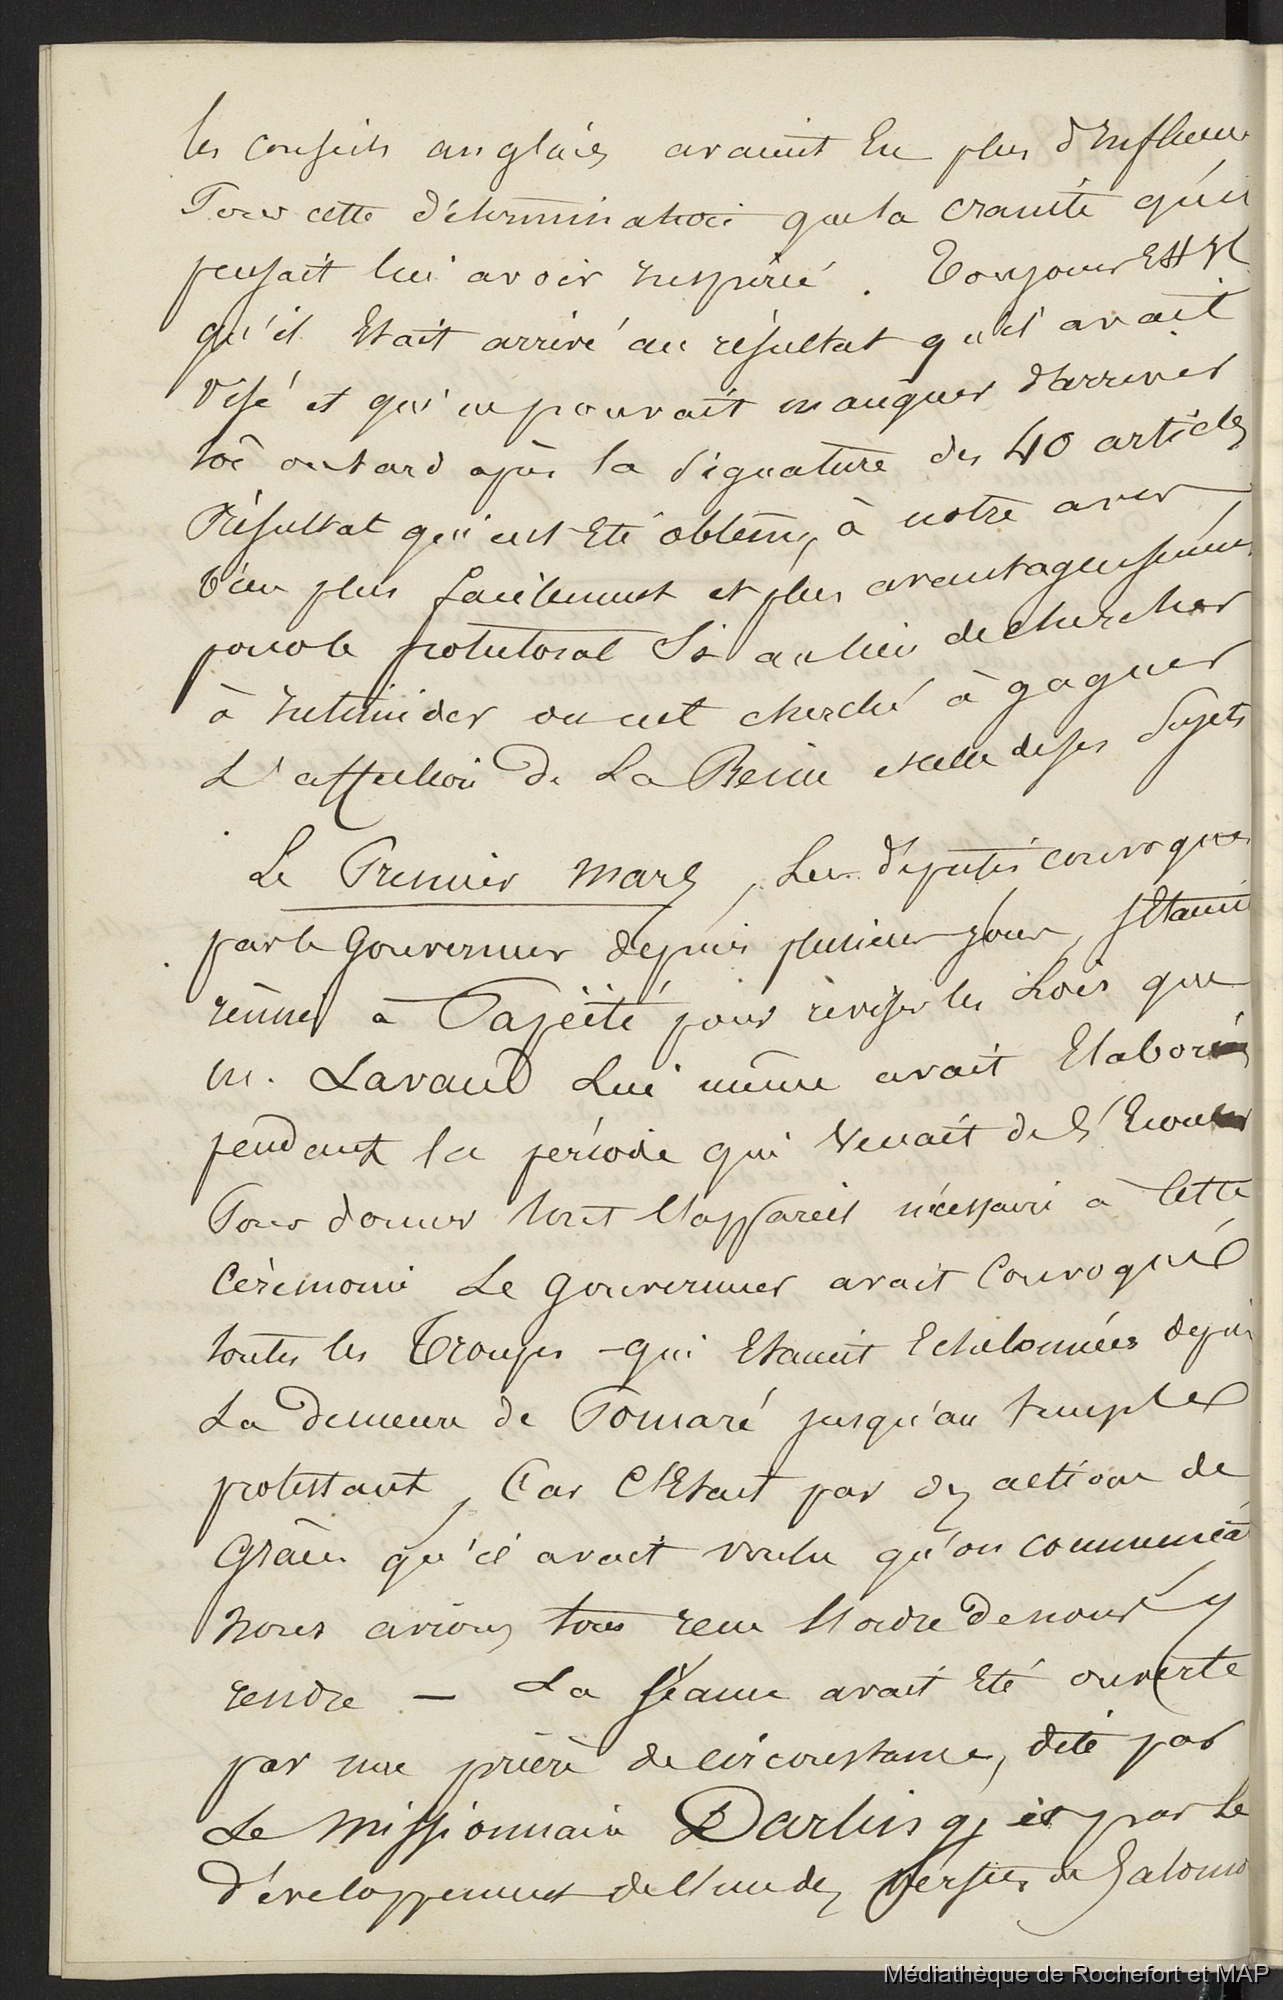 les conseils anglais avaient Eu plus d'Influence
Pour cette détermination que la crainte qu'il
pensait lui avoir Inspiré. Toujours Est il
qu'il Etait arrivé au résultat qu'il avait
visé et qui ne pouvait manquer d'arriver
tôt ou tard après la signature des 40 articles
Résultat qui eut Eté obtenu, à notre avis,
bien plus facilement et plus avantageusement
pour le protectorat Si au lieu de chercher
à Intimider on eut cherché à gagner
L'affection de La Reine et celle de ses Sujets
Le Premier Mars, Les députés convoqués
par le Gouverneur depuis plusieurs jours, s'Etaient
réunis à Papéïté pour réviser les Lois que
M. Lavaud Lui même avait Elaborées
pendant la période qui Venait de s'Ecouler
Pour donner tout l'appareil nécessaire à Cette
Cérémonie Le Gouverneur avait Convoqué
toutes les Troupes qui Etaient Echelonnées depuis
La Demeure de Pomaré jusqu'au temple
protestant, Car C'Etait par des actions de
Grâces qu'il avait voulu qu'on commençât
Nous avions tous reçu l'ordre de nous y
rendre — La séance avait Eté ouverte
par une prière de circonstance, dite par
Le Missionnaire Darling et par Le
développement de l'un des versets de Salomon
Médiathèque de Rochefort et MAP